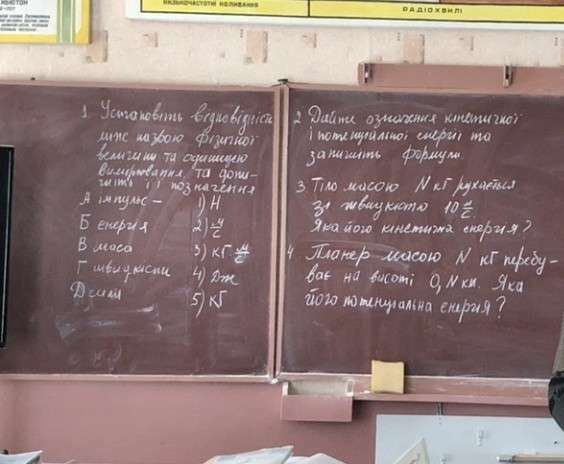 НИЗЬКОЧАСТОТНІ КОЛИВАННЯ
РАДІОХВИЛІ
1 Установіть відповідність
між назвою фізичної
величини та одиницею
вимірювання, та допи-
шіть її позначення
А імпульс – 1) Н
Б енергія 2) м/с
В маса 3) кг м/с
Г швидкість 4) Дж
Д сили 5) кг
2 Дайте означення кінетичної
і потенціальної енергії та
запишіть формули.
3. Тіло масою N кг рухається
зі швидкістю 10 м/с
Яка його кінетична енергія?
4 Планер масою N кг перебу-
ває на висоті 0,N км. Яка
його потенціальна енергія?